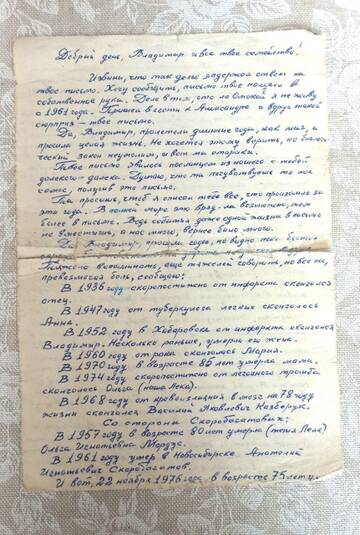 Добрый день, Владимир и все твое семейство!
Извини, что так долго задержал ответ на
твое письмо. Хочу сообщить, письмо твое попало в
собственные руки. Дело в том, что на я не живу
с 1961 года. Пришел в гости к Александре и вдруг такой
сюрприз – твое письмо.
Да, Владимир, пролетели длинные годы, как миг, и
прошла целая жизнь. Не хочется этому верить, но биологи-
ческий закон неумолим, и вот мы старики.
Твое письмо явилось посланцем из нашего с тобой
далекого-далека. Думаю, что ты почувствуешь то же
самое, получив это письмо.
Ты просишь, чтоб я описал тебе все, что произошло за
эти года. В полной мере это вряд ли возможно, тем
более в письме. Ведь события даже одной жизни в письмо
не вместишь, а нас много, вернее было много.
Да, Владимир, прошли годы, не видно
вспоминать, еще тяжелей говорить, но все же,
превозмогая боль, сообщаю:
В 1936 году скоропостижно от инфаркта скончался
отец.
В 1947 году от туберкулеза легких скончалась
Анна.
В 1952 году в Хабаровске от инфаркта скончался
Владимир. Несколько раньше, умерла его жена.
В 1960 году от рака скончалась Мария.
В 1970 году в возрасте 86 лет умерла мама.
В 1974 году скоропостижно от легочного тромба
скончалась Ольга (наша Лека).
В 1968 году от кровоизлияния в мозг на 78 году
жизни скончался Василий Яковлевич
Со стороны Скоробогатовых:
В 1957 году в возрасте 80 лет умерла (тетя Леля)
Ольга Игнатьевна
В 1961 году умер в Новосибирске Анатолий
Игнатьевич Скоробогатов.
И вот, 22 ноября 1976 года в возрасте 75 лет